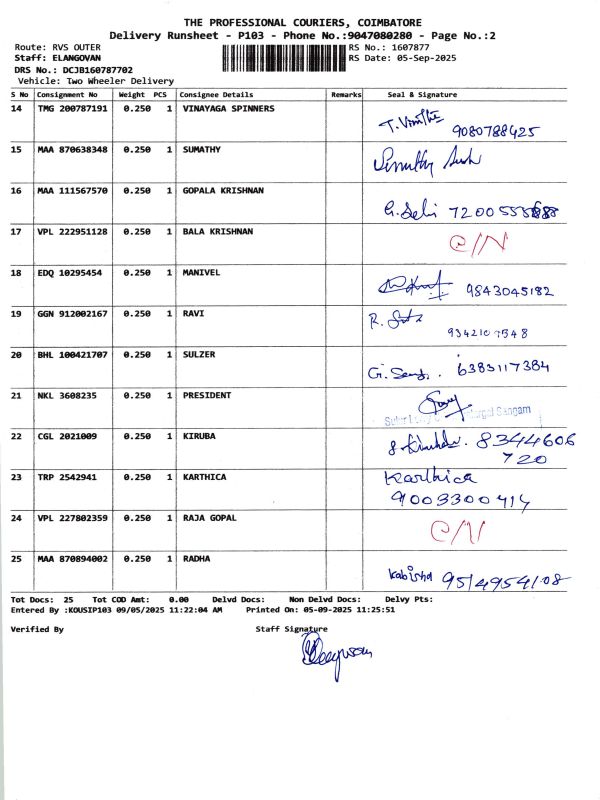 THE PROFESSIONAL COURIERS, COIMBATORE
Delivery Runsheet - P103 - Phone No.:9047080280 - Page No.:2
Route: RVS OUTER RS No.: 1607877
Staff: ELANGOVAN RS Date: 05-Sep-2025
DRS No.: DCJB160787702
Vehicle: Two Wheeler Delivery
S No Consignment No Weight PCS Consignee Details Remarks Seal & Signature
14 TMG 200787191 0.250 1 VINAYAGA SPINNERS
9080788425
15 MAA 870638348 0.250 1 SUMATHY
16 MAA 111567570 0.250 1 GOPALA KRISHNAN
G. Selvi
17 VPL 222951128 0.250 1 BALA KRISHNAN
C/N
18 EDQ 10295454 0.250 1 MANIVEL
9843045182
19 GGN 912002167 0.250 1 RAVI
20 BHL 100421707 0.250 1 SULZER
6383117384
21 NKL 3608235 0.250 1 PRESIDENT
Sangam
22 CGL 2021009 0.250 1 KIRUBA
8344606
720
23 TRP 2542941 0.250 1 KARTHICA
Karthica
9003300414
24 VPL 227802359 0.250 1 RAJA GOPAL
C/N
25 MAA 870894002 0.250 1 RADHA
Kabisha 9514954108
Tot Docs: 25 Tot COD Amt: 0.00 Delvd Docs: Non Delvd Docs: Delvy Pts:
Entered By :KOUSIP103 09/05/2025 11:22:04 AM Printed On: 05-09-2025 11:25:51
Verified By Staff Signature